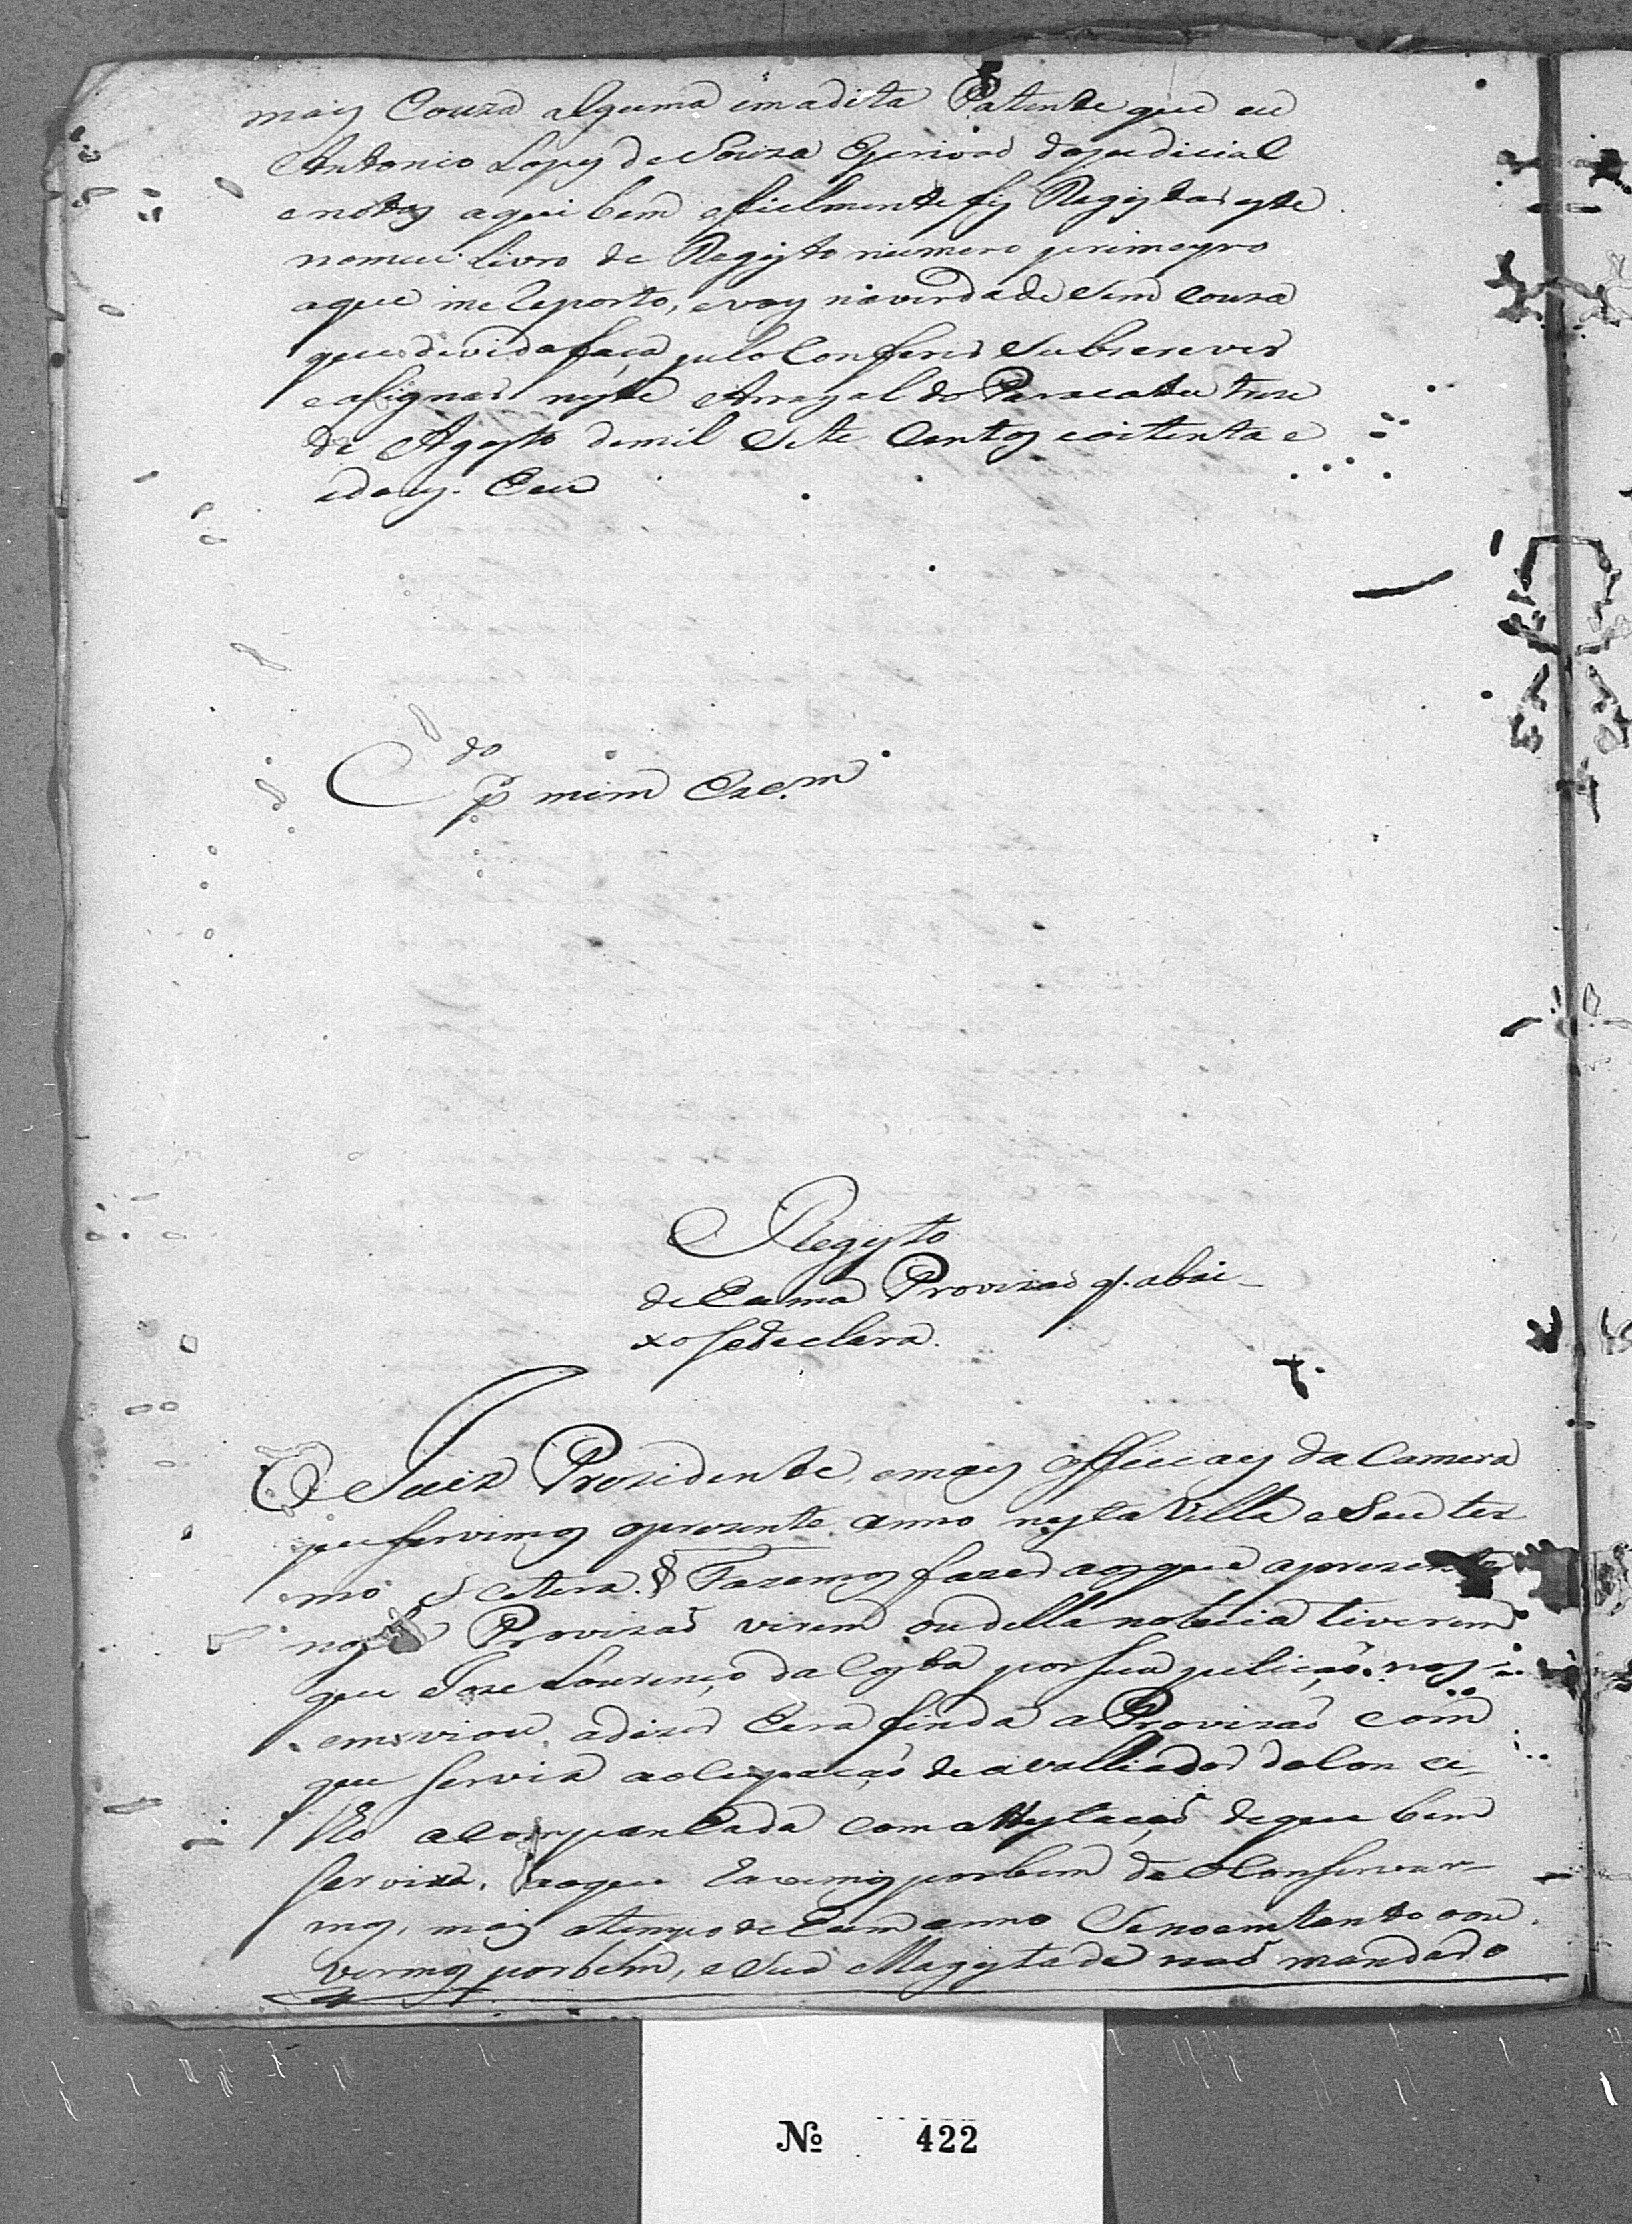 mays Couza alguma em adita Patente que eu
Antonio Lopes de Souza Escrivaõ do judicial
e notas aqui bem e fielmente fis Registar este
nomeu livro de Registo numero primeyro
aque me Reporto, e vay na verdade Sem Couza
que duvida faça, pelo Conferir Subscrever
e asignar neste Arrayal do Paracatu treze
de Agosto demil e Sete Centos e oitenta e
e doys. E eu
C.do
p.r mim Esc.m
Registo
de Huma Provizaõ q. abai-
xo Sedeclara.
O Juiz Prezidente, emays Officiaes da Camera
que Servimos oprezente anno nesta Villa e Seu ter
mo & Cetera. Fazemos Saber aosque aprezente
nosa Provizaõ virem oudella noticia tiverem
que Joze Lourenço da Costa por Sua petiçaõ nos
emviou adizer Hera finda a Provizaõ com
que Servia aocupaçaõ de avalliador do Con ce
lho acompanhada com attestaçaõ deque bem
Servira. aoque Havemos porbem de o Conservar-
mos, mais otempo de Hum anno Se noemtanto ou
vermos porbem, e Sua Magestade naõ mandar o
Nº 422